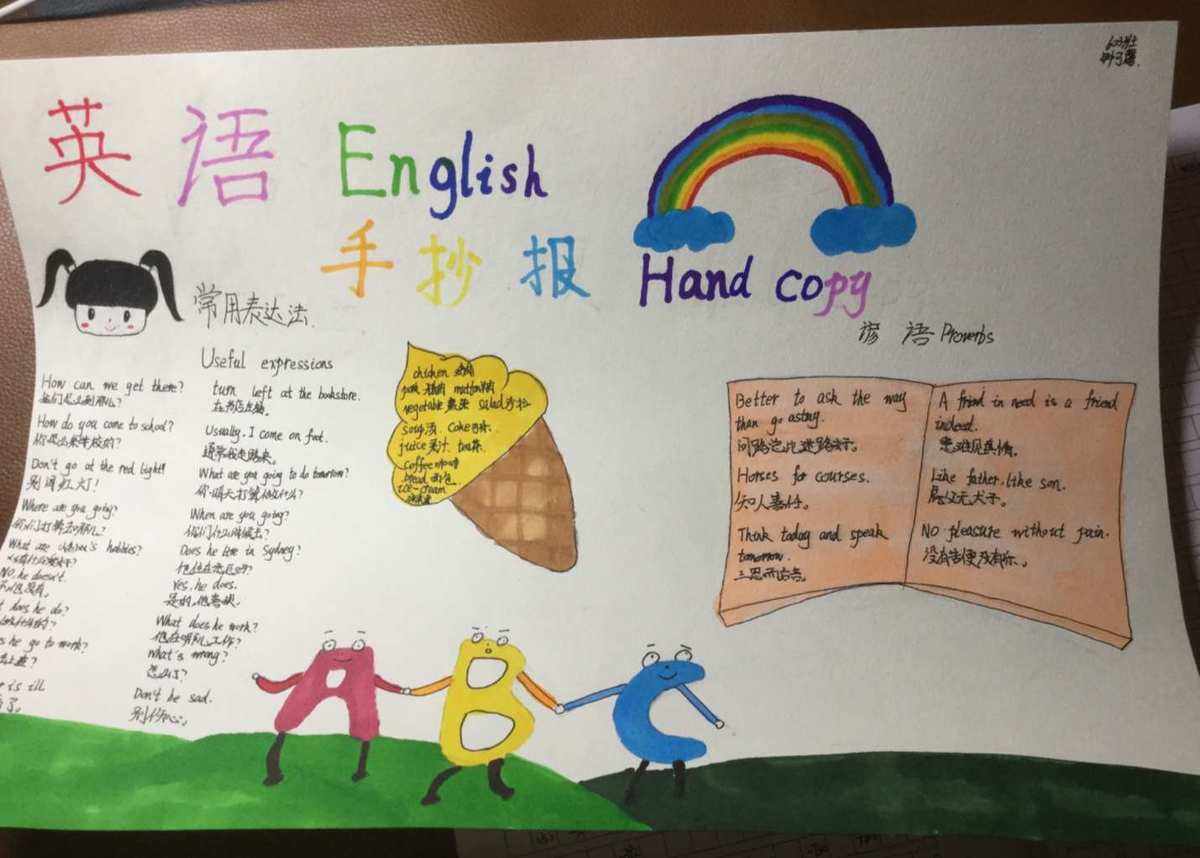 英语 English
手抄报 Hand copy
常用表达法
Useful expressions
How can we get there?
How do you come to school?
Don't go at the red light!
别闯红灯!
Where are you going?
What are children's hobbies?
No, he doesn't.
does he do?
he go to work?
is ill
turn left at the bookstore.
在书店左转。
Usually, I come on foot.
通常我走路来。
What are you going to do tomorrow?
你明天打算做什么?
When are you going?
你们什么时候去?
Does he live in Sydney?
他住在悉尼吗?
Yes, he does.
是的,他喜欢。
What does he work?
他在哪儿工作?
What's wrong?
怎么了?
Don't he sad.
别伤心。
chicken 鸡肉
pork 猪肉 mutton 羊肉
vegetable 蔬菜 salad 沙拉
soup 汤 Coke 可乐
juice 果汁 tea 茶
coffee 咖啡
bread 面包
ice-cream
谚语 Proverbs
Better to ask the way
than go astray.
问路总比迷路好。
Horses for courses.
知人善任。
Think today and speak
tomorrow.
三思而后言。
A friend in need is a friend
indeed.
患难见真情。
Like father, like son.
虎父无犬子。
No pleasure without pain.